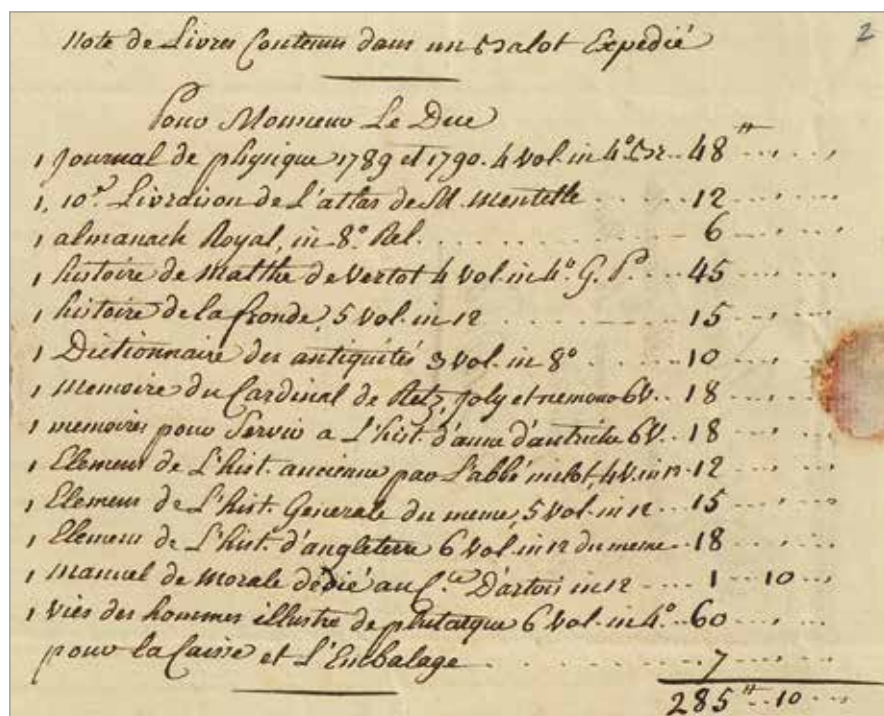 2
Note de Livres Contenus dans un Balot Expédié
Pour Monsieur Le Duc
1 Journal de physique 1789 et 1790. 4 Vol. in 4º Br... 48 ₶ ......
1, 10e Livraison de L'atlas de M. Mentelle 12 ......
1 almanach Royal, in 8º Rel. ........ 6 ......
1 histoire de Malthe de Vertot 4 Vol. in 4º. G. P. ... 45 ......
1 histoire de la fronde, 5 Vol. in 12 ........ 15 ......
1 Dictionnaire des antiquités 3 Vol. in 8º ...... 10 ......
1 Memoire du Cardinal de Retz, Joly et nemours 6 V.. 18 ......
1 memoires pour Servir a L'hist. d'anne d'autriche 6 V.. 18 ......
1 Elemens de L'hist. ancienne par L'abbé millot, 4 V. in 12 - 12 ......
1 Elemens de L'hist. Generale du meme, 5 Vol. in 12 ... 15 ......
1 Elemens de L'hist. d'angleterre 6 Vol. in 12 du meme .. 18 ......
1 Manuel de Morale dédié au C.te D'artois in 12 .... 1 ... 10 ...
1 Vies des hommes illustre de plutarque 6 Vol. in 4º. .. 60 ......
pour la Caisse et L'Embalage ........ 7 ......
285 ₶ .. 10 ...